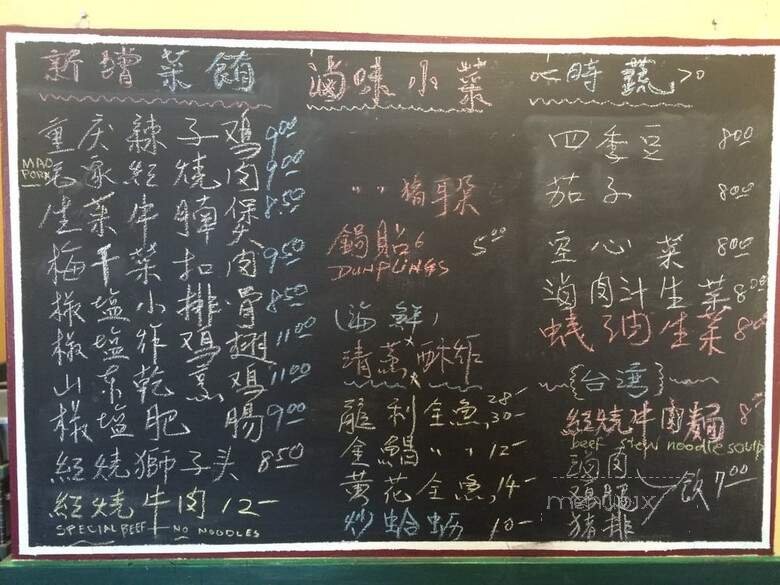 新增菜餚
重庆辣子鸡 9.00
MAO PORK
毛家红燒肉 9.00
生菜牛腩煲 8.50
梅干菜扣肉 9.50
椒塩小排骨 8.50
椒塩炸鸡翅 11.00
山东乾蒸鸡 11.00
椒塩肥腸 9.00
紅燒獅子头 8.50
紅燒牛肉 12-
SPECIAL BEEF - NO NOODLES
滷味小菜
" " 猪耳朵
鍋貼 6 5.00
DUMPLINGS
(海鮮)
清蒸 酥炸
全魚, 28- 30-
金鯧 " " 12-
黄花全魚, 14-
炒蛤蛎 10-
<時蔬>
四季豆 8.00
茄子 8.00
空心菜 8.00
滷肉汁生菜 8.00
蚝油生菜 8.00
{台湾}
紅燒牛肉麵 8.-
beef stew noodle soup
滷肉
鷄腿 飯 7.00
猪排
menupix